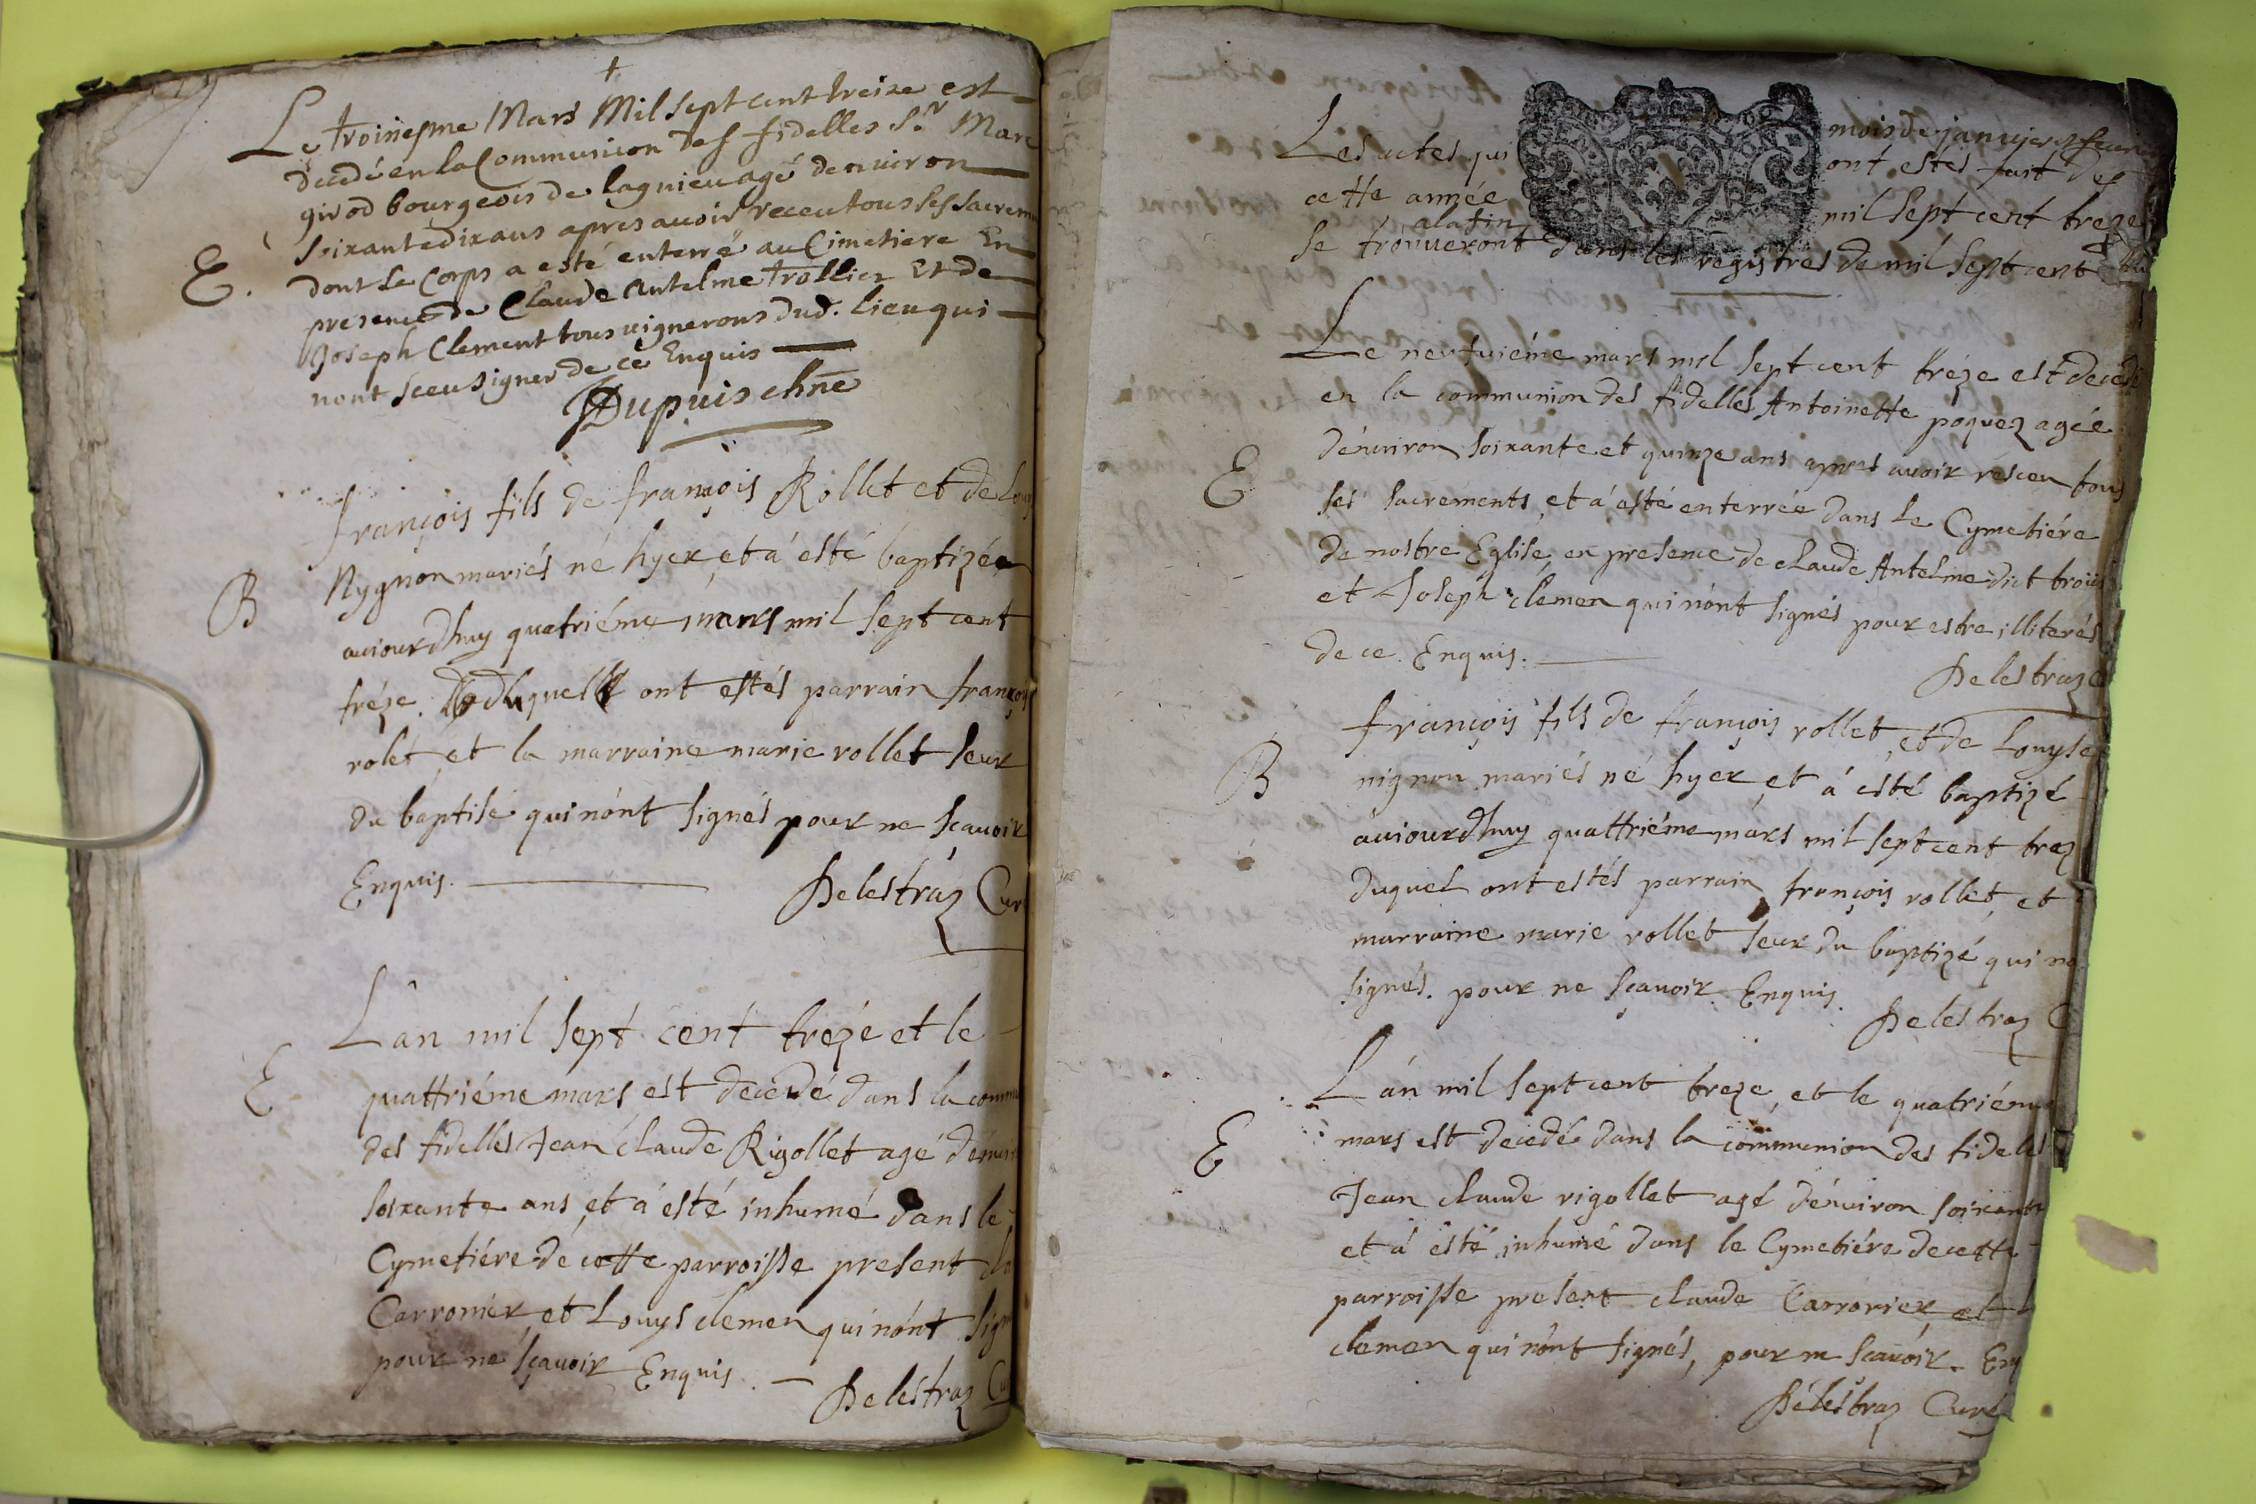 +
Le troiziesme Mars Mil sept cent treize est
decedé en la Communion des fidelles Sr. Marc
girod bourgeois de lagnieu agé denuiron
soixante dix ans apres auoir receu tous ses sacrem
E.
dont le Corps a esté enterré au Cimetiere En
presence de Claude antelme trollier Et de
Joseph Clement tous uignerons dud. lieu qui
nont sceu signer de ce Enquis
Dupuis
françois fils de françois Rollet et de Lou
B
Nygnon mariés né hyer, et a esté baptizé
auiourdhuy quatriéme mars mil sept cent
tréze. duquel ont estés parrain françois
rolet, et la marraine marie rollet seur
du baptisé qui nónt signés pour ne sçauoir
Enquis.
Delestraz Cur
Lan mil sept cent trézé et le
E
quattriéme mars est decedé dans la comm
des fidelles Jean claude Rigollet agé
soixante ans, et á esté inhumé dans le
Cymetiére dé cette parroisse present
Carronier et Louys clemen qui nónt sig
pour né sçauoir Enquis.
Delestraz Cu
Les actes qui
mois de januier et feurier
cette année
ont estés fait des
alafin
mil sept cent treze
se trouueront dans les registres de mil sept cent
Le neufuiéme mars mil sept cent tréze est decedé
en la communion des fidelles Antoinette poquez agée
E
dénuiron soixante et quinze ans apres auoir résceu tous
ses sacrements, et á esté enterrée dans le Cymetiére
de nostre Eglise, en presence de claude Antelme dict
et Joseph clemen qui nónt signés pour estre illiterés
de ce Enquis.
Delestraz
françois fils de françois rollet, et de Louyse
B
nignon mariés né hyer, et á esté baptizé
auiourdhuy quattriéme mars mil sept cent trez
duquel ont estés parrain françois rollet, et
marraine marie rollet seur du baptizé qui no
signés. pour ne sçauoir Enquis.
Delestraz C
Lán mil sept cent treze, et le quatriéme
E
mars est decedé dans la communion des fideles
Jean claude rigollet agé dénuiron soixante
et á esté inhumé dans le Cymetiére de cette
parroisse present claude Carronier, et
clemen qui nónt signés, pour ne scauóir. Enq
Délestraz Curé